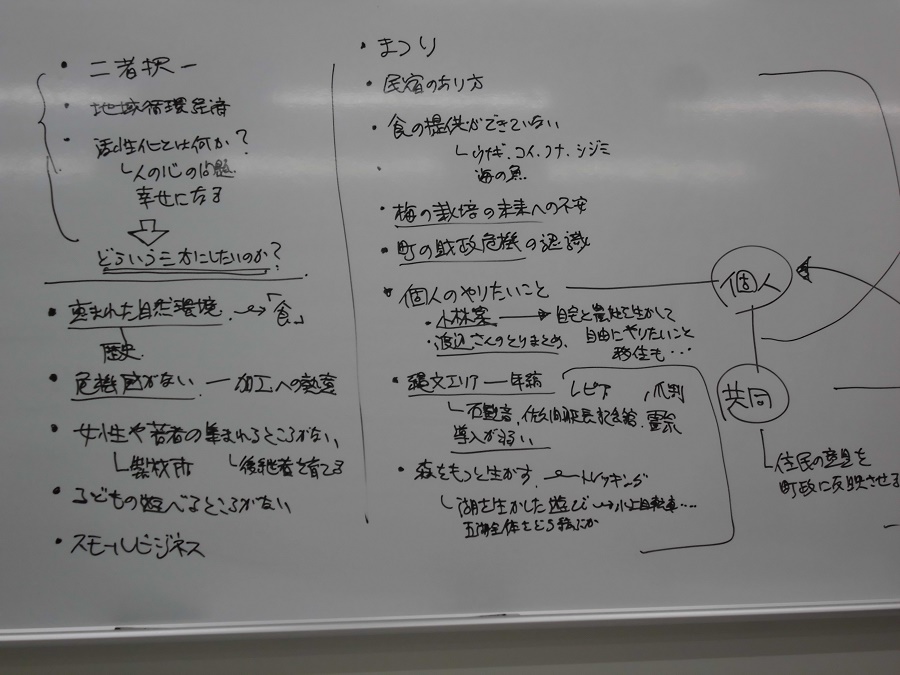 ・二者択一
・地域循環経済
・活性化とは何か?
人の心の問題
幸せになる
どういう三方にしたいのか?
・恵まれた自然環境 →「食」
歴史
・危機感がない ー 加工への熱意
・女性や若者の集まれるところがない
製材所 後継者を育てる
・子どもの遊べるところがない
・スモールビジネス
・まつり
・民宿のあり方
・食の提供ができていない
ウナギ、コイ、フナ、シジミ
海の魚
・梅の栽培の未来への不安
・町の財政危機の認識
・個人のやりたいこと
・小林案 → 自宅と農地を生かして
自由にやりたいこと
移住も…
・渡辺さんのとりまとめ、
・縄文エリア ー 年縞
レピア
石観音、佐久間艇長記念館
導入が弱い
・森をもっと生かす ← トレッキング
湖を生かした遊び ← 水上自転車….
五湖全体をどう
個人
共同
住民の意見を
町政に反映させる